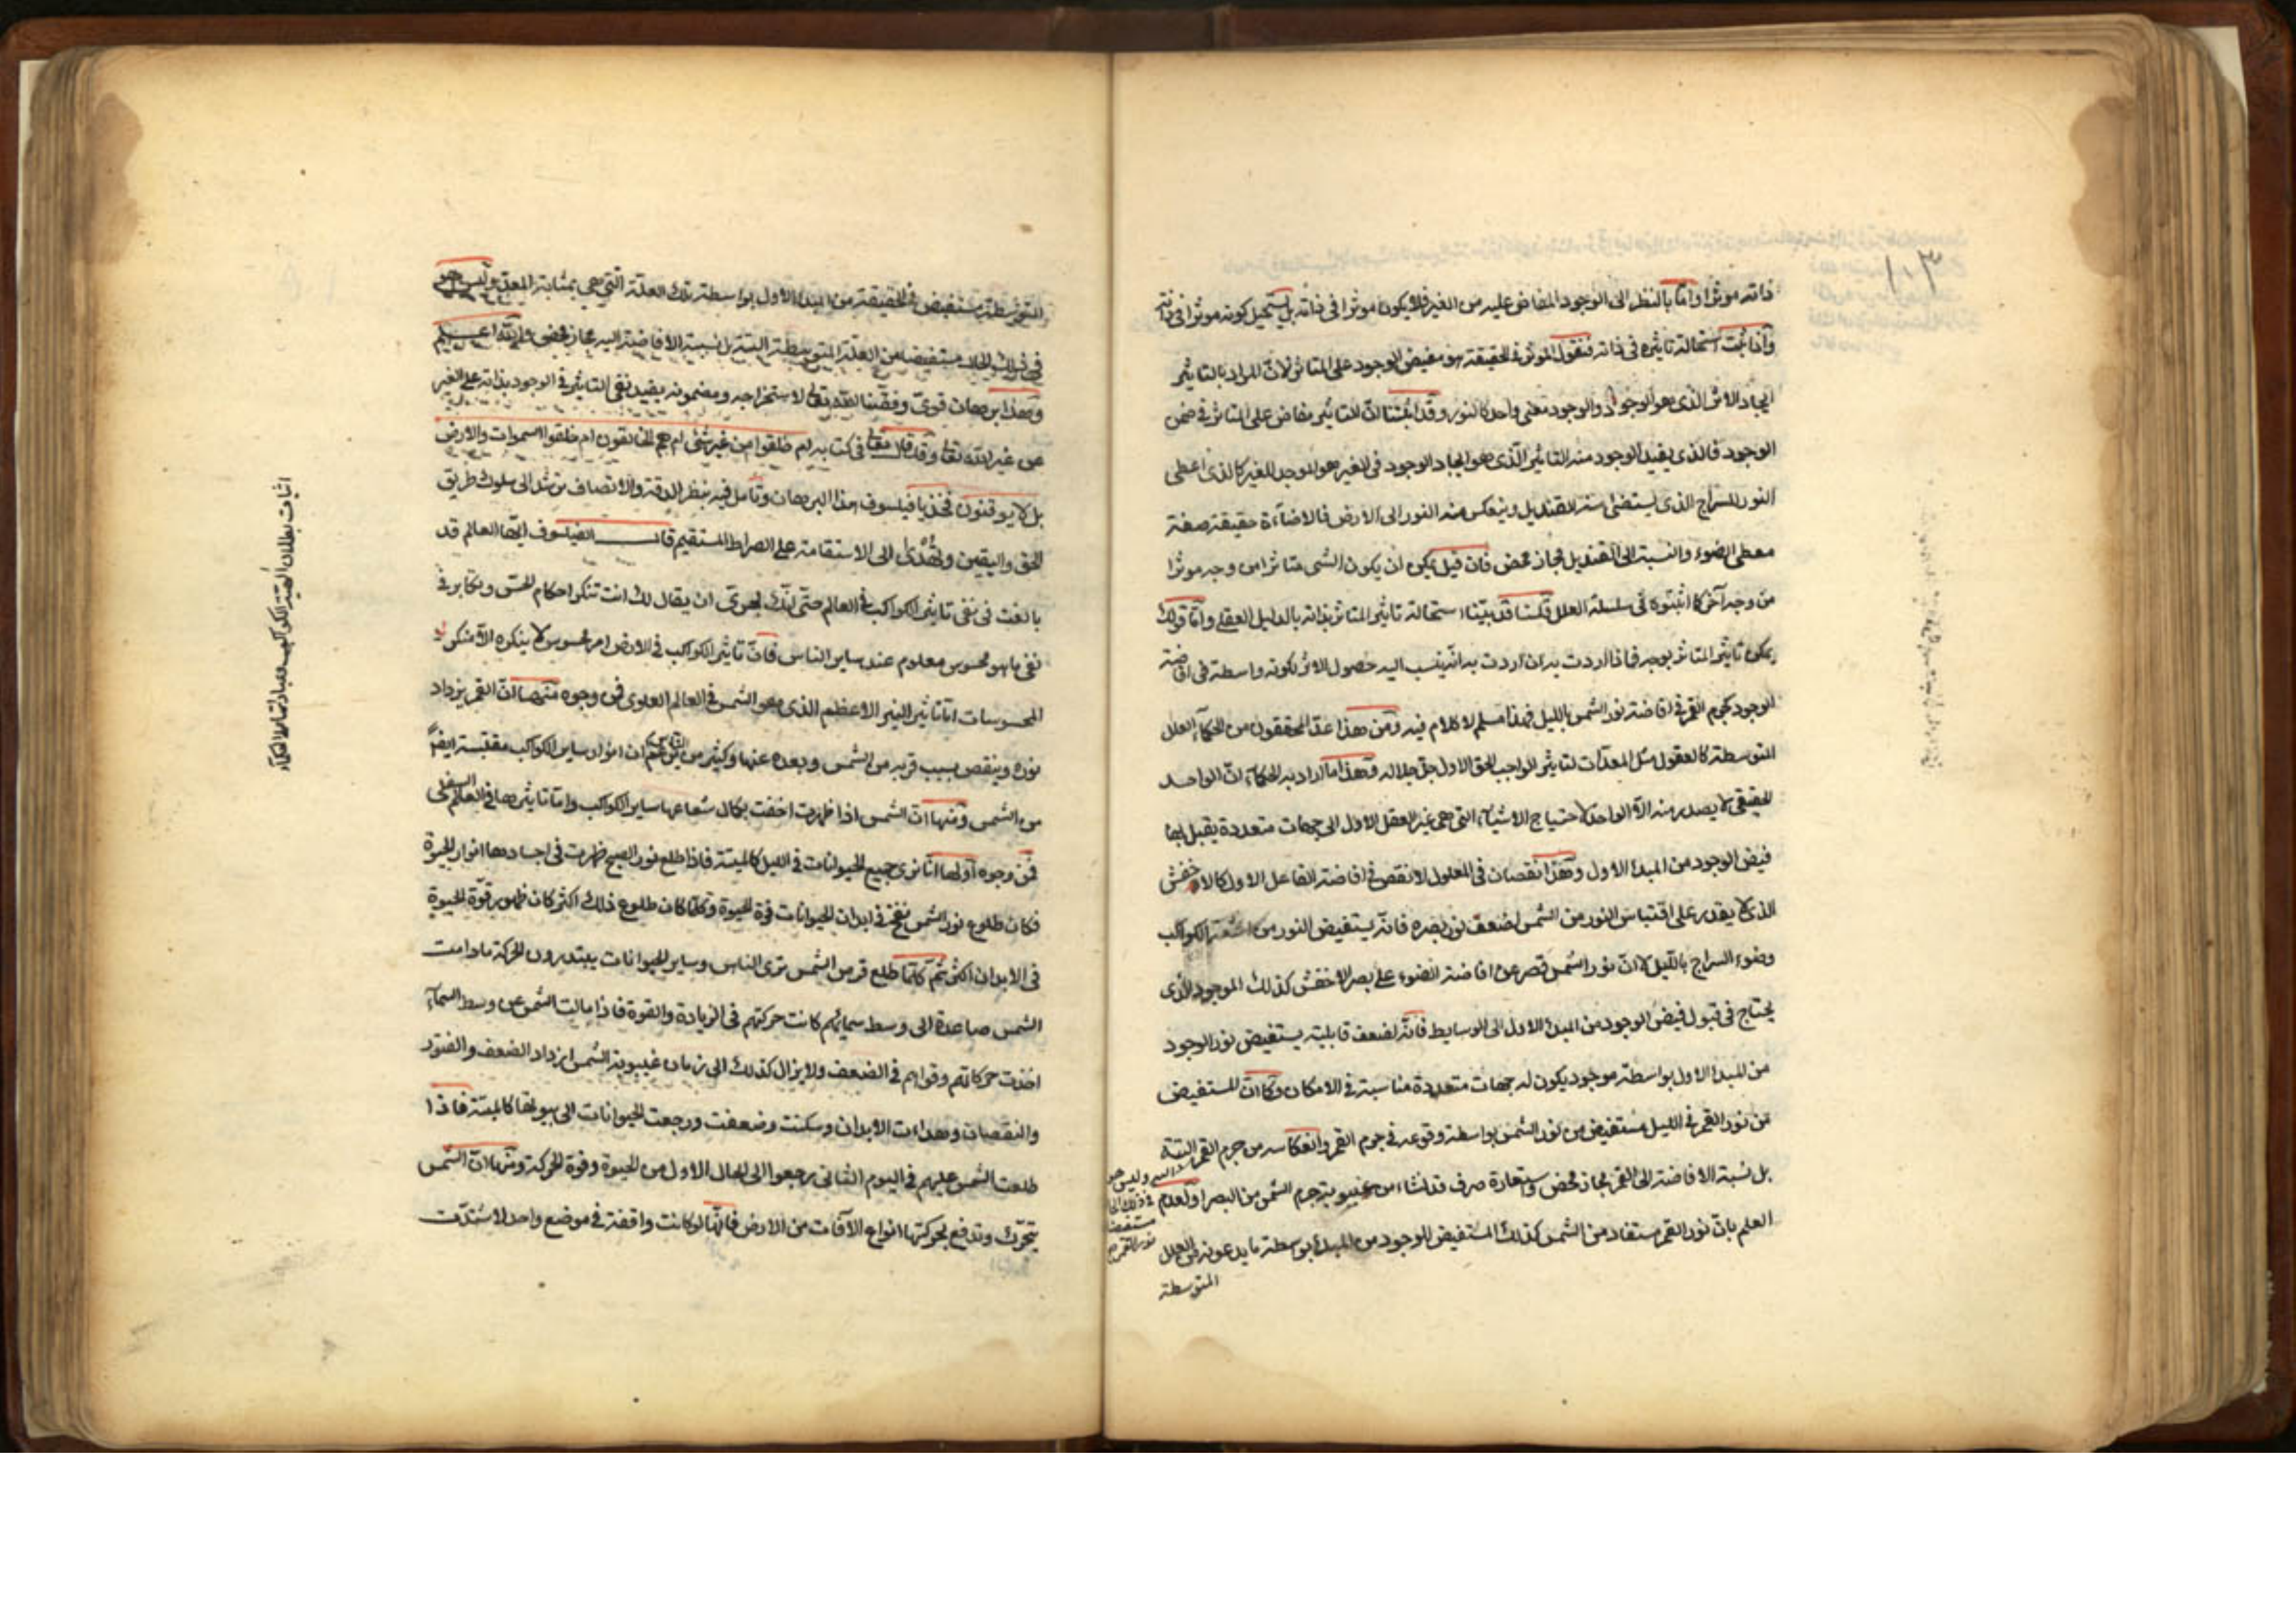 ١٠٣
ذاته موثرا واما بالنظر الى الوجود المفاض عليه من الغير فلا يكون موثرا فى ذاته بل يستحيل كونه موثرا فى ذاته
واذا ثبت استحالة تاثيره فى ذاته فنقول الموثر فى الحقيقة هو مفيض الوجود على المتاثر لانّ المراد بالتاثير
ايجاد الاثر الذى هو الوجود والوجود معنى واحد كالنور وقد اثبتنا انّ التاثير مفاض على المتاثر فى ضمن
الوجود فالذى يفيد الوجود منه التاثير الّذى هو ايجاد الوجود فى الغير هو الموجد للغير كالذى اعطى
النور للسراج الذى يستضئ منه القنديل وينعكس منه النور الى الارض فالاضآءة حقيقة صفة
معطى الضوء والنسبة الى القنديل مجاز محض فان قيل يمكن ان يكون الشى متاثرا من وجه موثرا
من وجه آخر كا اثبتوه فى سلسلة العلل قلنا قد بيّنا استحالة تاثير المتاثر بذاته بالدليل العقلى وامّا قولك
يمكن تاثير المتاثر بوجه فاذا اردت به ان اردت به انّه ينسب اليه حصول الاثر لكونه واسطة فى افاضة
الوجود كجرم القمر فى افاضة نور الشمس بالليل فهذا مسلم لا كلام فيه ومن هذا عدّ المحققون من الحكمآء العلل
المتوسطة كالعقول مثل المعدّات لتاثير الواجب الحق الاول جلّ جلاله وهذا ما اراد به الحكمآء انّ الواحد
الحقيقى لا يصدر منه الّا الواحد لاحتياج الاشيآء التى هى غير العقل الاول الى جهات متعددة يقبل بها
فيض الوجود من المبدء الاول وهذا نقصان فى المعلول لا نقص فى افاضة الفاعل الاول كالاخفش
الذى لا يقدر على اقتباس النور من الشمس لضعف نور بصره فانّه يستفيض النور من اشعة الكواكب
وضوء السراج بالليل لا انّ نور الشمس قصر عن افاضة الضوء على بصر الاخفش كذلك الموجود الذى
يحتاج فى قبول فيض الوجود من المبدء الاول الى الوسايط فانّه لضعف قابليته يستفيض نور الوجود
من المبدء الاول بواسطة موجود يكون له جهات متعددة مناسبة فى الامكان وكا انّ المستفيض
من نور القمر فى الليل مستفيض من نور الشمس بواسطة وقوعه فى جرم القمر وانعكاسه من جرم القمر
وليس هو فى ذلك الحال مستفيضا نور القمر من البتة
بل نسبة الافاضة الى القمر مجاز محض واستعارة صرف قد نشاء من غيبوبة جرم الشمس من البصر او لعدم
العلم بانّ نور القمر مستفاد من الشمس كذلك المستفيض الوجود من المبدء بوسطة ما يدعونه فى العلل
المتوسطة
المتوسطة مستفيض فى الحقيقة من المبدء الاول بواسطة تلك العلة الّتى هى بمثابة المعدّ وليس هو
فى ذلك الحال مستفيضا من العلة المتوسطة البتة بل نسبة الافاضة اليه مجاز محض والله اعلم
وهذا برهان قوىّ وفقنا الله تعالى لاستخراجه ومضمونه يفيد نفى التاثير فى الوجود بذاته على الغير
عن غير الله تعالى وقد قال تعالى فى كتابه ام خلقوا من غير شئ ام هم الخالقون ام خلقوا السموات والارض
بل لا يوقنون فخذ يا فيلسوف هذا البرهان وتامل فيه بنظر الدقة والانصاف ترشد الى سلوك طريق
الحق واليقين وتُهدى الى الاستقامة على الصراط المستقيم قال الفيلسوف ايّها العالم قد
بالغت فى نفى تاثير الكواكب فى العالم حتّى انّك لحرىّ ان يقال لك انت تنكر احكام الحسّ وتكابر فى
نفى ما هو محسوس معلوم عند ساير الناس فانّ تاثير الكواكب فى الارض امر محسوس لا ينكره الّا منكر
المحسوسات امّا تاثير النير الاعظم الذى هو الشمس فى العالم العلوى فمن وجوه منها انّ القمر يزداد
نوره وينقص بسبب قربه من الشمس وبعده عنها وكثير من الناس ان انوار ساير الكواكب مقتبسة ايضاً
من الشمس ومنها انّ الشمس اذا ظهرت اخفت بكمال شعاعها ساير الكواكب وامّا تاثيرها فى العالم السفلى
فمن وجوه اولها انّا نرى جميع الحيوانات فى الليل كالميتة فاذا طلع نور الصبح ظهرت فى اجسادها انوار الحيوة
فكان طلوع نور الشمس ينفخ فى ابدان الحيوانات قوة الحيوة وكلما كان طلوع ذلك اكثر كان ظهور قوّة الحيوة
فى الابدان اكثر ثمّ كلّما طلع قرص الشمس ترى الناس وساير الحيوانات يبتدرون الحركة ما دامت
الشمس صاعدة الى وسط سمائهم كانت حركتهم فى الزيادة والقوة فاذا مالت الشمس عن وسط السمآء
اخذت حركاتهم وقواهم فى الضعف ولا يزال كذلك الى زمان غيبوبة الشمس ازداد الضعف والفتور
والنقصان وهداءت الابدان وسكنت وضعفت ورجعت الحيوانات الى بيوتها كالميتة فاذا
طلعت الشمس عليهم فى اليوم الثانى رجعوا الى الحال الاول من الحيوة وقوة الحركة ومنها انّ الشمس
يتحرّك وتدفع بحركتها انواع الآفات من الارض فانّها لو كانت واقفة فى موضع واحد لاشتدّت
اثبات بطلان الوهيّة الكواكب وعبادتها